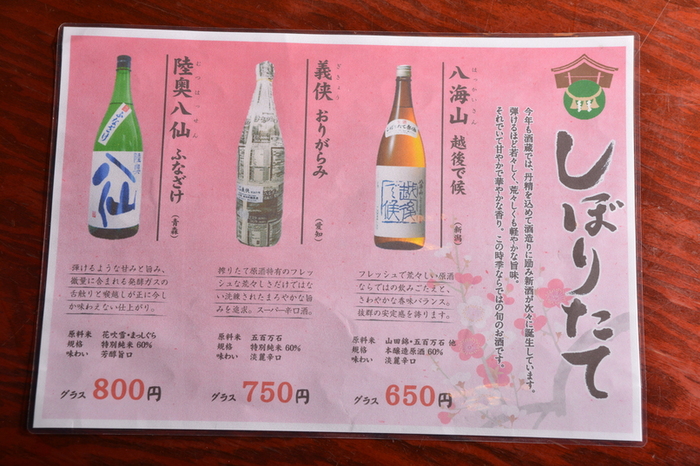 しぼりたて
今年も酒蔵では、丹精を込めて酒造りに励み新酒が次々に誕生しています。
弾けるほど若々しく、荒々しくも軽やかな旨味。
それでいて甘やかで華やかな香り。この時季ならではの旬のお酒です。
はっかいさん
八海山 越後で候
(新潟)
越後で候
フレッシュで荒々しい原酒
ならではの飲みごたえと、
さわやかな香味バランス。
抜群の安定感を誇ります。
原料米 山田錦・五百万石 他
規格 本醸造原酒 60%
味わい 淡麗辛口
グラス 650円
ぎきょう
義侠 おりがらみ
(愛知)
搾りたて原酒特有のフレッ
シュな荒々しさだけではな
い洗練されたまろやかな旨
みを追求。スーパー辛口酒。
原料米 五百万石
規格 特別純米 60%
味わい 淡麗辛口
グラス 750円
むつはっせん
陸奥八仙 ふなざけ
(青森)
ふなざけ
八仙
弾けるような甘みと旨み、
微量に含まれる発酵ガスの
舌触りと喉越しが正に今し
か味わえない仕上がり。
原料米 花吹雪・まっしぐら
規格 特別純米 60%
味わい 芳醇旨口
グラス 800円